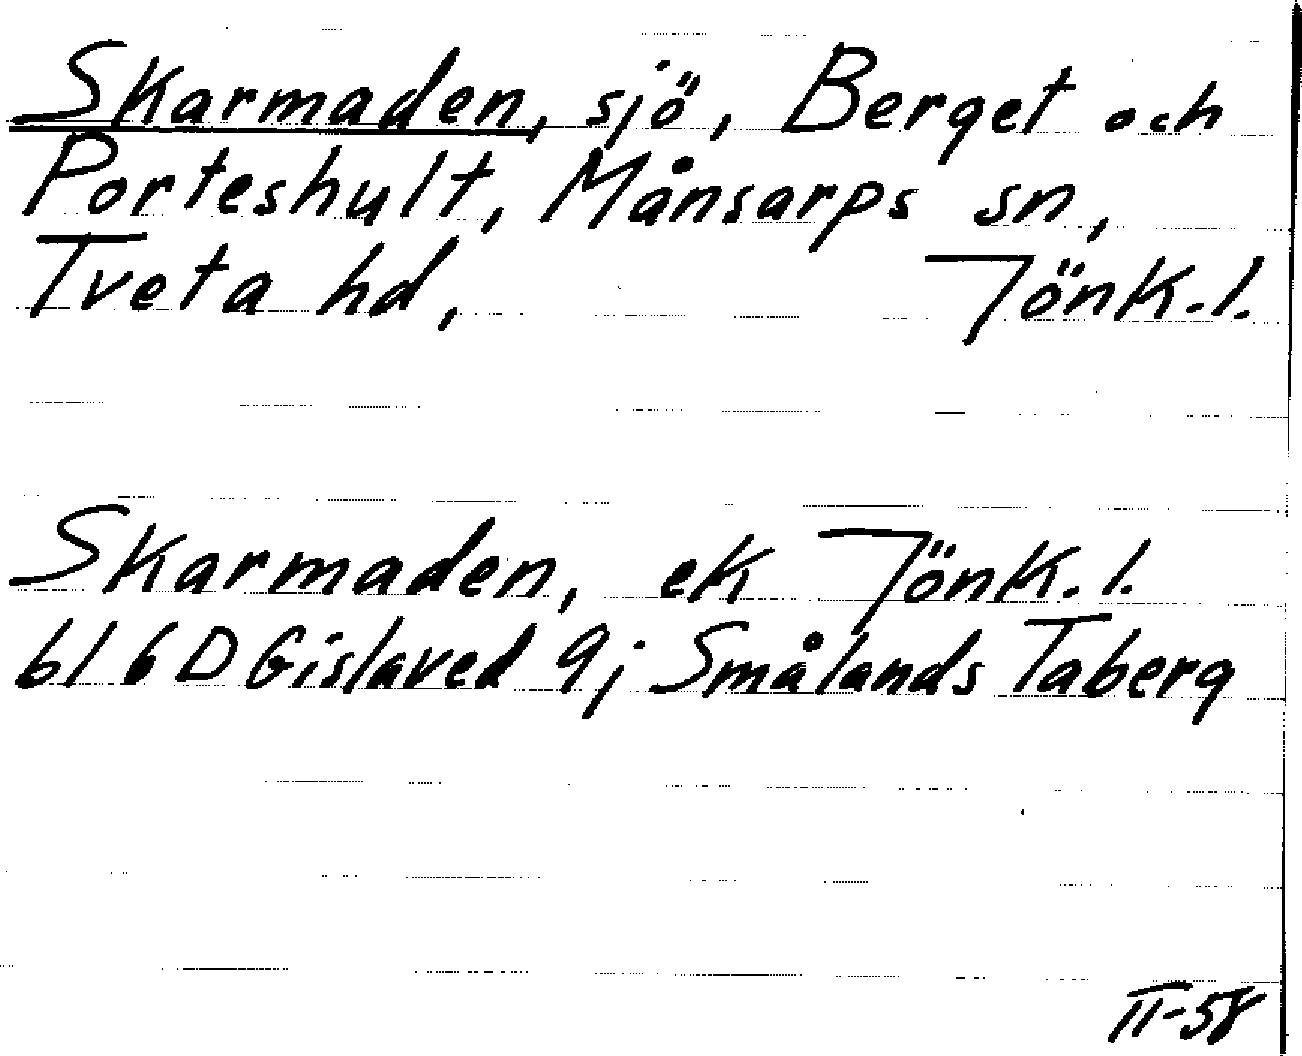 Skarmaden, sjö, Berget och
Porteshult, Månsarps sn,
Tveta hd, Jönk.l.
Skarmaden, ek Jönk.l.
bl 6D Gislaved 9j Smålands Taberg
II-58